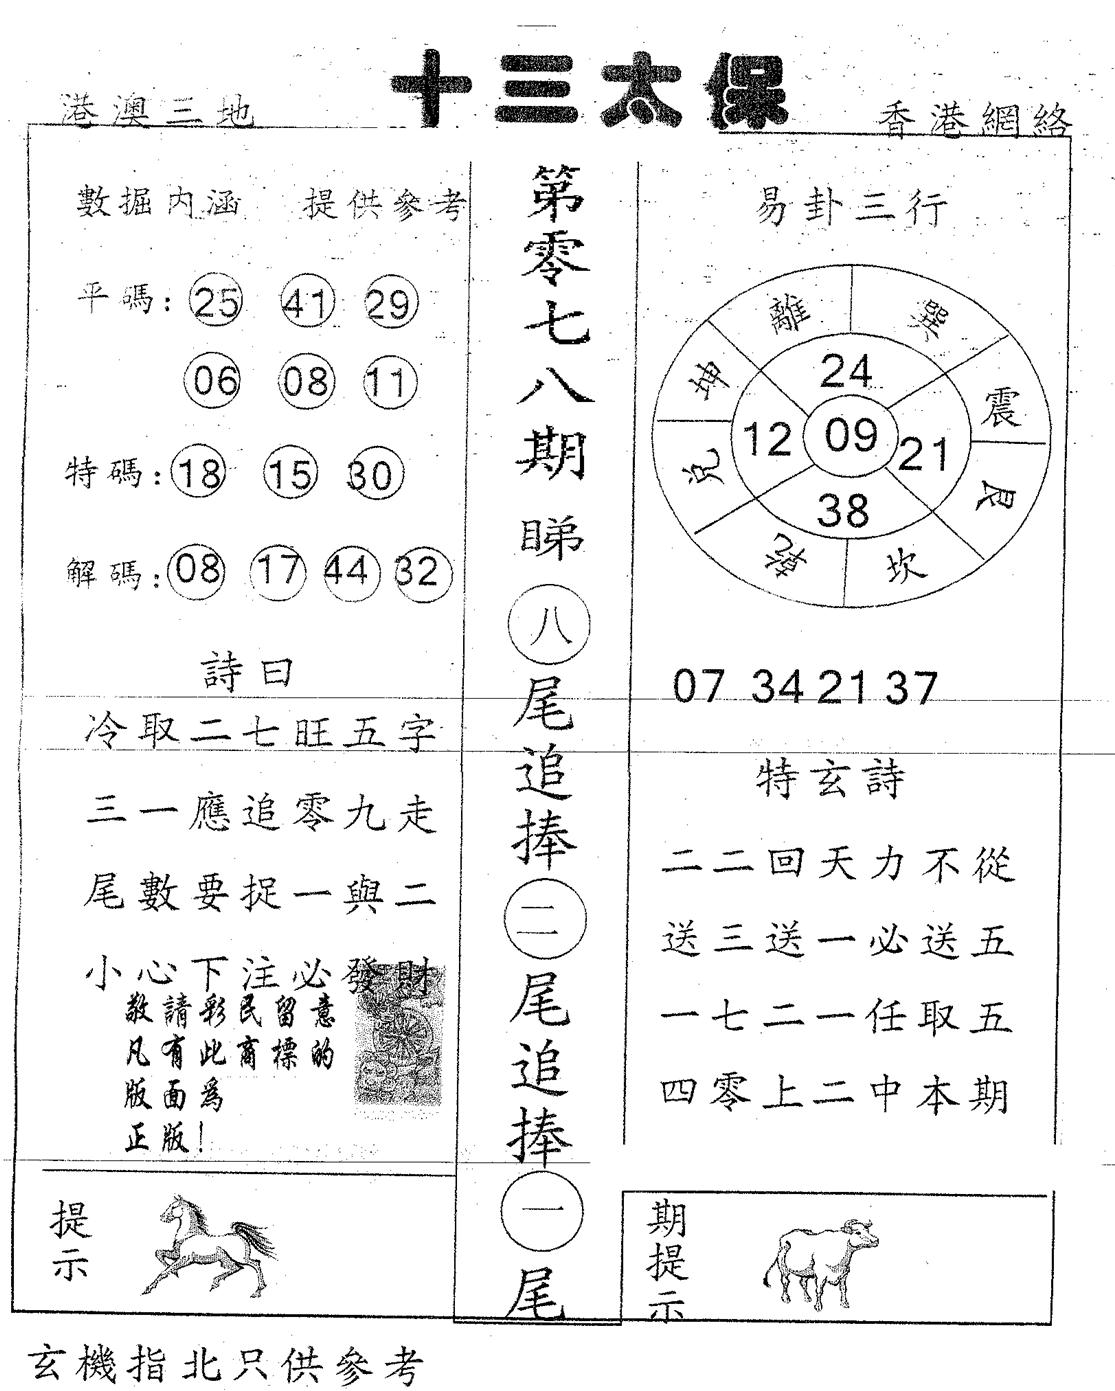 十三太保
港澳三地
香港網絡
數掘内涵 提供參考
平碼: 25 41 29
06 08 11
特碼: 18 15 30
解碼: 08 17 44 32
詩曰
冷取二七旺五字
三一應追零九走
尾數要捉一與二
小心下注必發財
敬請彩民留意
凡有此商標的
版面爲
正版!
提示
第零七八期
睇八尾追捧二尾追捧一尾
易卦三行
離 巽
坤 震
兌 艮
乾 坎
24
12 09 21
38
07 34 21 37
特玄詩
二二回天力不從
送三送一必送五
一七二一任取五
四零上二中本期
期提示
玄機指北只供參考